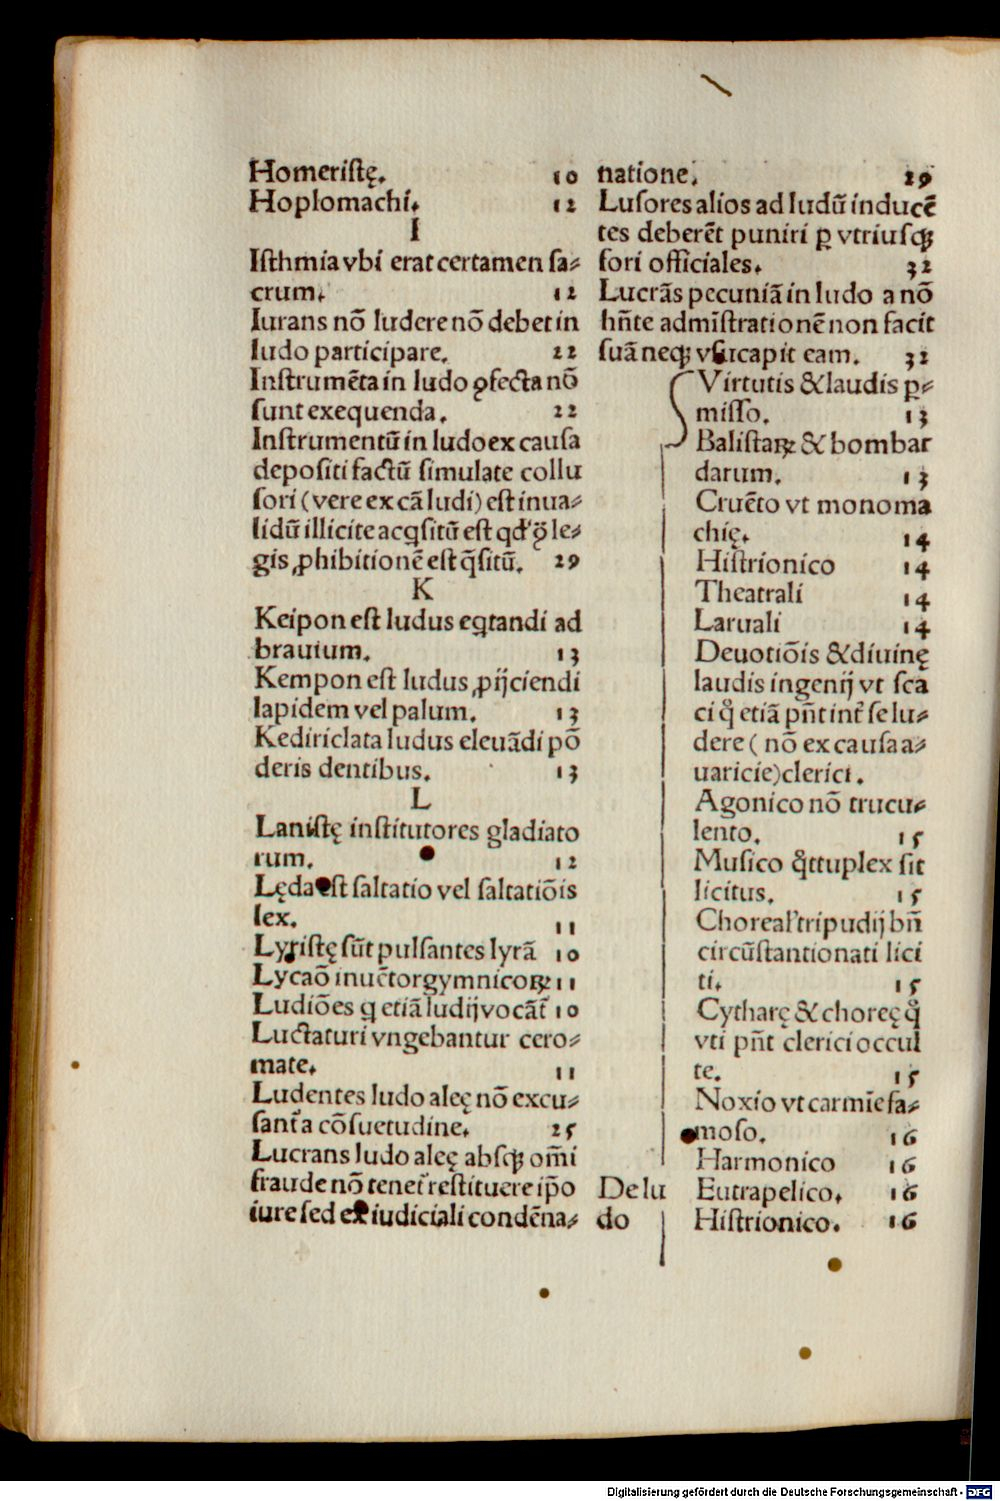 Homeristę. 10
Hoplomachi. 12
I
Isthmia vbi erat certamen sa⸗
crum. 12
Iurans nō ludere nō debet in
ludo participare. 22
Instrumēta in ludo ꝓfecta nō
sunt exequenda. 22
Instrumentū in ludo ex causa
depositi factū simulate collu
sori (vere ex cā ludi) est inua⸗
lidū illicite acꝗsitū est qđ ꝓ le⸗
gis ꝓhibitionē est q̄situ̅. 29
K
Keipon est ludus eꝗtandi ad
brauium. 13
Kempon est ludus ꝓijciendi
lapidem vel palum. 13
Kediriclata ludus eleuādi pō
deris dentibus. 13
L
Lanistę institutores gladiato
rum. 12
Lęda est saltatio vel saltatiōis
lex. 11
Lyristę sūt pulsantes lyrā 10
Lycaō inuētor gymnicoꝝ 11
Ludiōes ꝗ etiā ludij vocāt̉ 10
Luctaturi vngebantur cero⸗
mate. 11
Ludentes ludo aleę nō excu⸗
sant̉ a cōsuetudine. 25
Lucrans ludo aleę absqꝫ om̄i
fraude nō tenet̉ restituere ip̄o
iure sed ex iudiciali condēna⸗
natione. 29
Lusores alios ad ludū inducē
tes deberēt puniri ꝑ vtriusqꝫ
fori officiales. 32
Lucrās pecuniā in ludo a nō
hn̄te admīstrationē non facit
suā neqꝫ vsucapit eam. 32
De lu
do
Virtutis & laudis ꝑ⸗
misso. 13
Balistaꝝ & bombar
darum. 13
Cruēto vt monoma
chię. 14
Histrionico 14
Theatrali 14
Laruali 14
Deuotiōis & diuinę
laudis ingenij vt sca
ci ꝙ̉ etiā pn̄t int̉ se lu⸗
dere ( nō ex causa a⸗
uaricie) clerici.
Agonico nō trucu⸗
lento. 15
Musico q̉ttuplex sit
licitus. 15
Choreal' tripudij bn̄
circūstantionati lici
ti. 15
Cytharę & choreę q̉
vti pn̄t clerici occul
te. 15
Noxio vt carmīe fa⸗
moso. 16
Harmonico 16
Eutrapelico. 16
Histrionico. 16
Digitalisierung gefördert durch die Deutsche Forschungsgemeinschaft - DFG